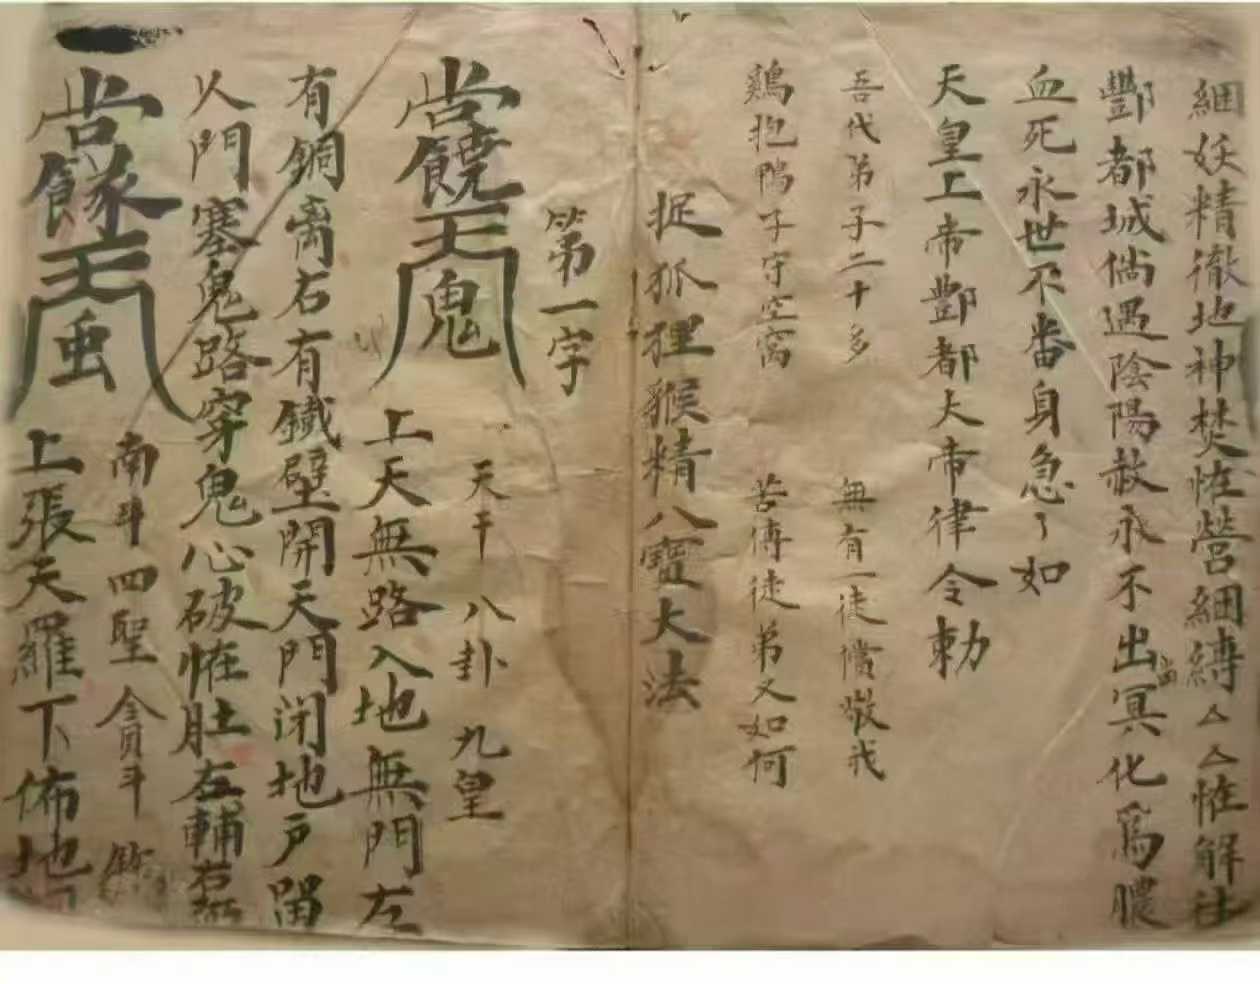 綑妖精徹地神焚恠營綑縛厶厶恠解往
酆都城倘遇陰陽赦永不出冥化爲膿
當
血死永世不番身急了如
天皇上帝酆都大帝律令勅
吾代弟子二十多 無有一徒償敬我
鷄抱鴨子守空窩 苦傳徒弟又如何
捉狐狸猴精八寶大法
第一字
天干八卦九皇
鬼 上天無路入地無門左
有銅离右有鐵壁開天門闭地户畱
人門塞鬼路穿鬼心破恠肚左輔右弼
南斗四聖貪斗
上張天羅下佈地